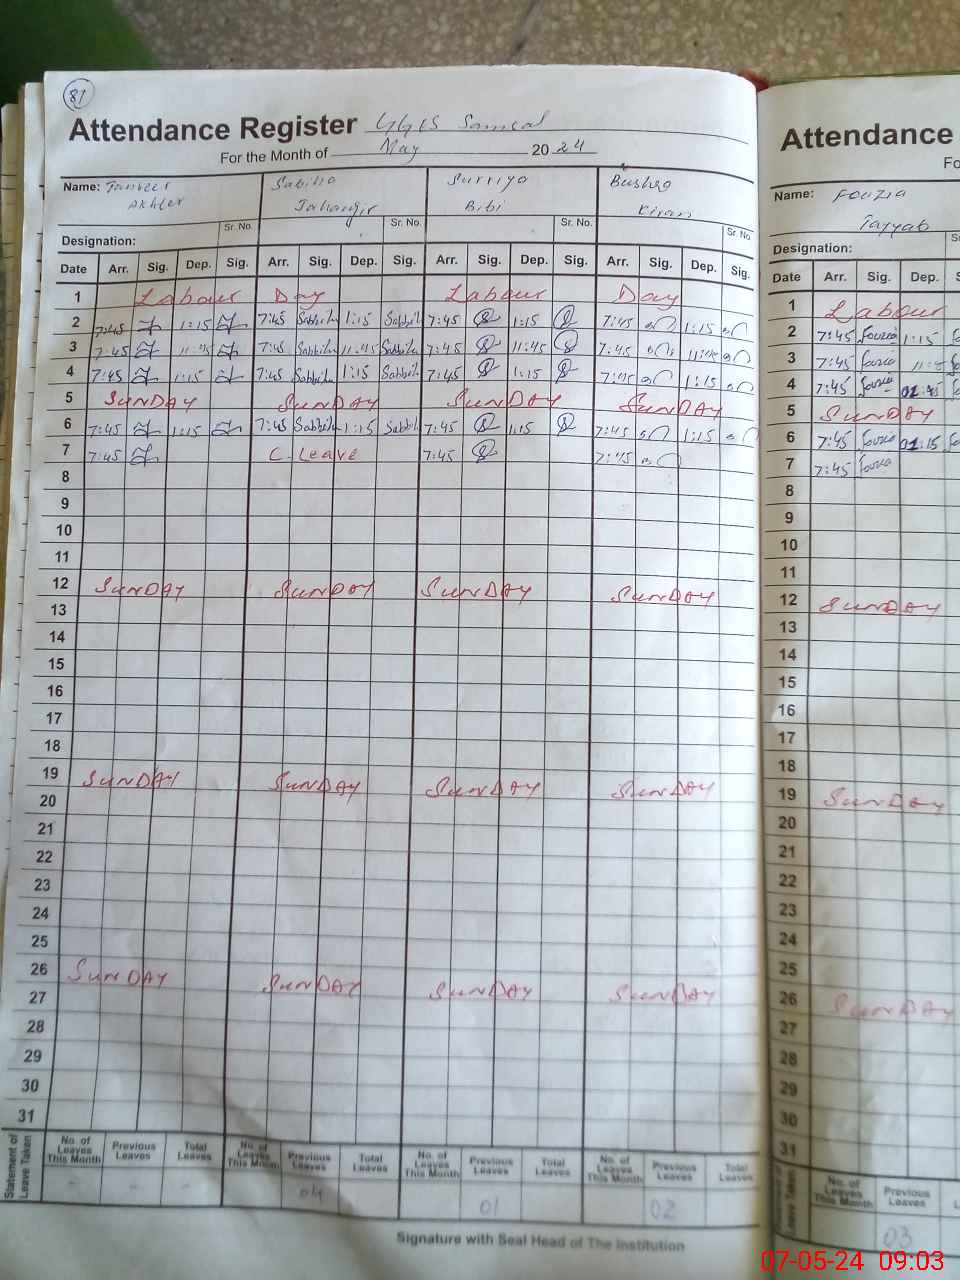 81
Attendance Register GGES
For the Month of May 2024
Name: Tanveer Akhter
Sabiha Jahangir
Surriya Bibi
Bushra Kiran
Sr. No. Sr. No. Sr. No. Sr. No.
Designation:
Date Arr. Sig. Dep. Sig. Arr. Sig. Dep. Sig. Arr. Sig. Dep. Sig. Arr. Sig. Dep. Sig.
1 Labour Day Labour Day
2 7:45 1:15 7:45 Sabbiha 1:15 Sabbiha 7:45 1:15 7:45 1:15
3 7:45 11:45 7:45 Sabbiha 11:45 Sabbiha 7:45 11:45 7:45 11:45
4 7:45 1:15 7:45 Sabbiha 1:15 Sabbiha 7:45 1:15 7:45 1:15
5 SUNDAY SUNDAY SUNDAY SUNDAY
6 7:45 1:15 7:45 Sabbiha 1:15 Sabbiha 7:45 1:15 7:45 1:15
7 7:45 C. Leave 7:45 7:45
8
9
10
11
12 SUNDAY SUNDAY SUNDAY SUNDAY
13
14
15
16
17
18
19 SUNDAY SUNDAY SUNDAY SUNDAY
20
21
22
23
24
25
26 SUNDAY SUNDAY SUNDAY SUNDAY
27
28
29
30
31
Statement of Leave Taken
No. of Leaves This Month Previous Leaves Total Leaves No. of Leaves This Month Previous Leaves Total Leaves No. of Leaves This Month Previous Leaves Total Leaves No. of Leaves This Month Previous Leaves Total Leaves
- - - 04 01 02
Signature with Seal Head of The Institution
Attendance
Name: Fouzia Tayyab
Designation:
Date Arr. Sig. Dep.
1 Labour
2 7:45 Fouzia 1:15
3 7:45 Fouzia
4 7:45 Fouzia
5 SUNDAY
6 7:45 Fouzia
7 7:45 Fouzia
8
9
10
11
12 SUNDAY
13
14
15
16
17
18
19 SUNDAY
20
21
22
23
24
25
26 SUNDAY
27
28
29
30
31
No. of Leaves This Month Previous Leaves
03
07-05-24 09:03